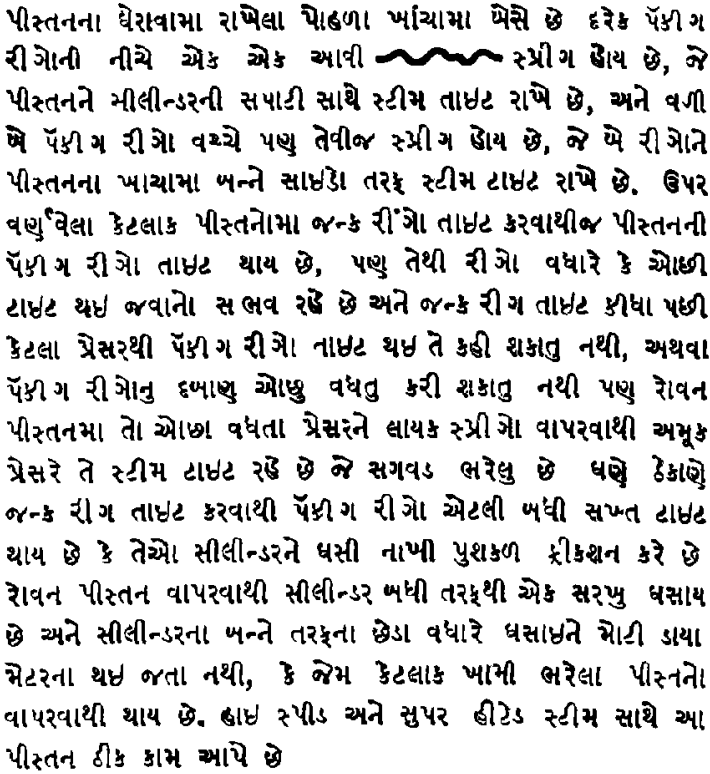 પીસ્તનના ઘેરાવામા રાખેલા પોહળા ખાંચામા બેસે છે દરેક પૅકીગ
રીંગોની નીચે એક એક આવી સ્પ્રીગ હોય છે, જે
પીસ્તનને સીલીન્ડરની સપાટી સાથે સ્ટીમ તાઇટ રાખે છે, અને વળી
બે પૅકીગ રીગો વચ્ચે પણુ તેવીજ સ્પ્રીગ હોય છે, જે બે રીગોને
પીસ્તનના ખાચામા બન્ને સાઇડો તરફ સ્ટીમ ટાઇટ રાખે છે. ઉપર
વર્ણુવેલા કેટલાક પીસ્તનોમા જન્ક રીંગો તાઇટ કરવાથીજ પીસ્તનની
પૅકીગ રીગો તાઇટ થાય છે, પણુ તેથી રીગો વધારે કે ઓછી
ટાઇટ થઇ જવાનો સભવ રહે છે અને જન્ક રીગ તાઇટ કીધા પછી
કેટલા પ્રેસરથી પૅકીગ રીગો તાઇટ થઇ તે કહી શકાતુ નથી, અથવા
પૅકીગ રીગોનુ દબાણુ ઓછુ વધતુ કરી શકાતુ નથી પણ રોવન
પીસ્તનમા તો ઓછા વધતા પ્રેસરને લાયક સ્પ્રીગો વાપરવાથી અમૂક
પ્રેસરે તે સ્ટીમ ટાઇટ રહે છે જે સગવડ ભરેલુ છે ઘણે ઠેકાણે
જન્ક રીગ તાઇટ કરવાથી પૅકીગ રીગો એટલી બધી સખ્ત ટાઇટ
થાય છે કે તેઓ સીલીન્ડરને ઘસી નાખી પુશકળ ફ્રીકશન કરે છે
રોવન પીસ્તન વાપરવાથી સીલીન્ડર બધી તરફથી એક સરખુ ઘસાય
છે અને સીલીન્ડરના બન્ને તરફના છેડા વધારે ઘસાઇને મોટી ડાયા
મેટરના થઇ જતા નથી, કે જેમ કેટલાક ખામી ભરેલા પીસ્તનો
વાપરવાથી થાય છે. હાઇ સ્પીડ અને સુપર હીટેડ સ્ટીમ સાથે આ
પીસ્તન ઠીક કામ આપે છે